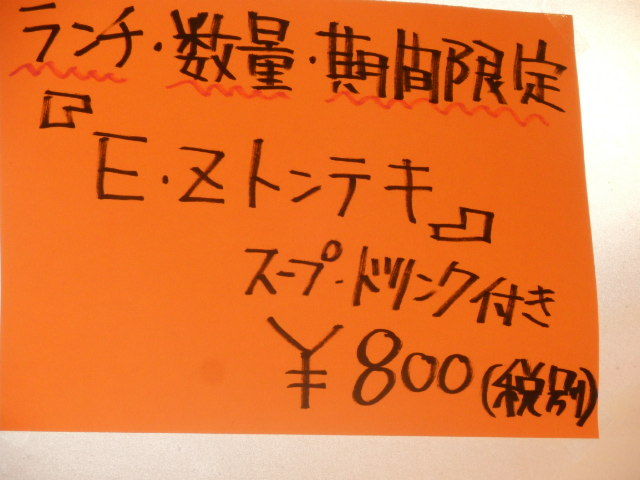 ランチ・数量・期間限定
『E・Zトンテキ』
スープ・ドリンク付き
¥800(税別)